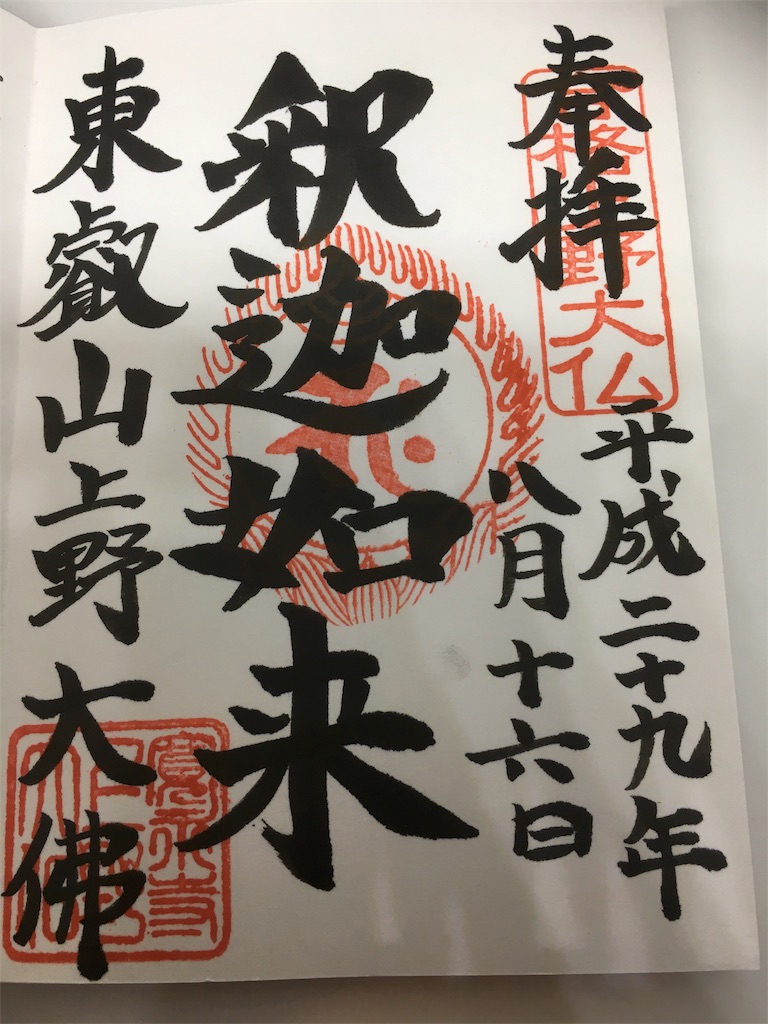 奉拝
合格上野大仏
平成二十九年
八月十六日
釈迦如来
東叡山上野大佛
寛永寺